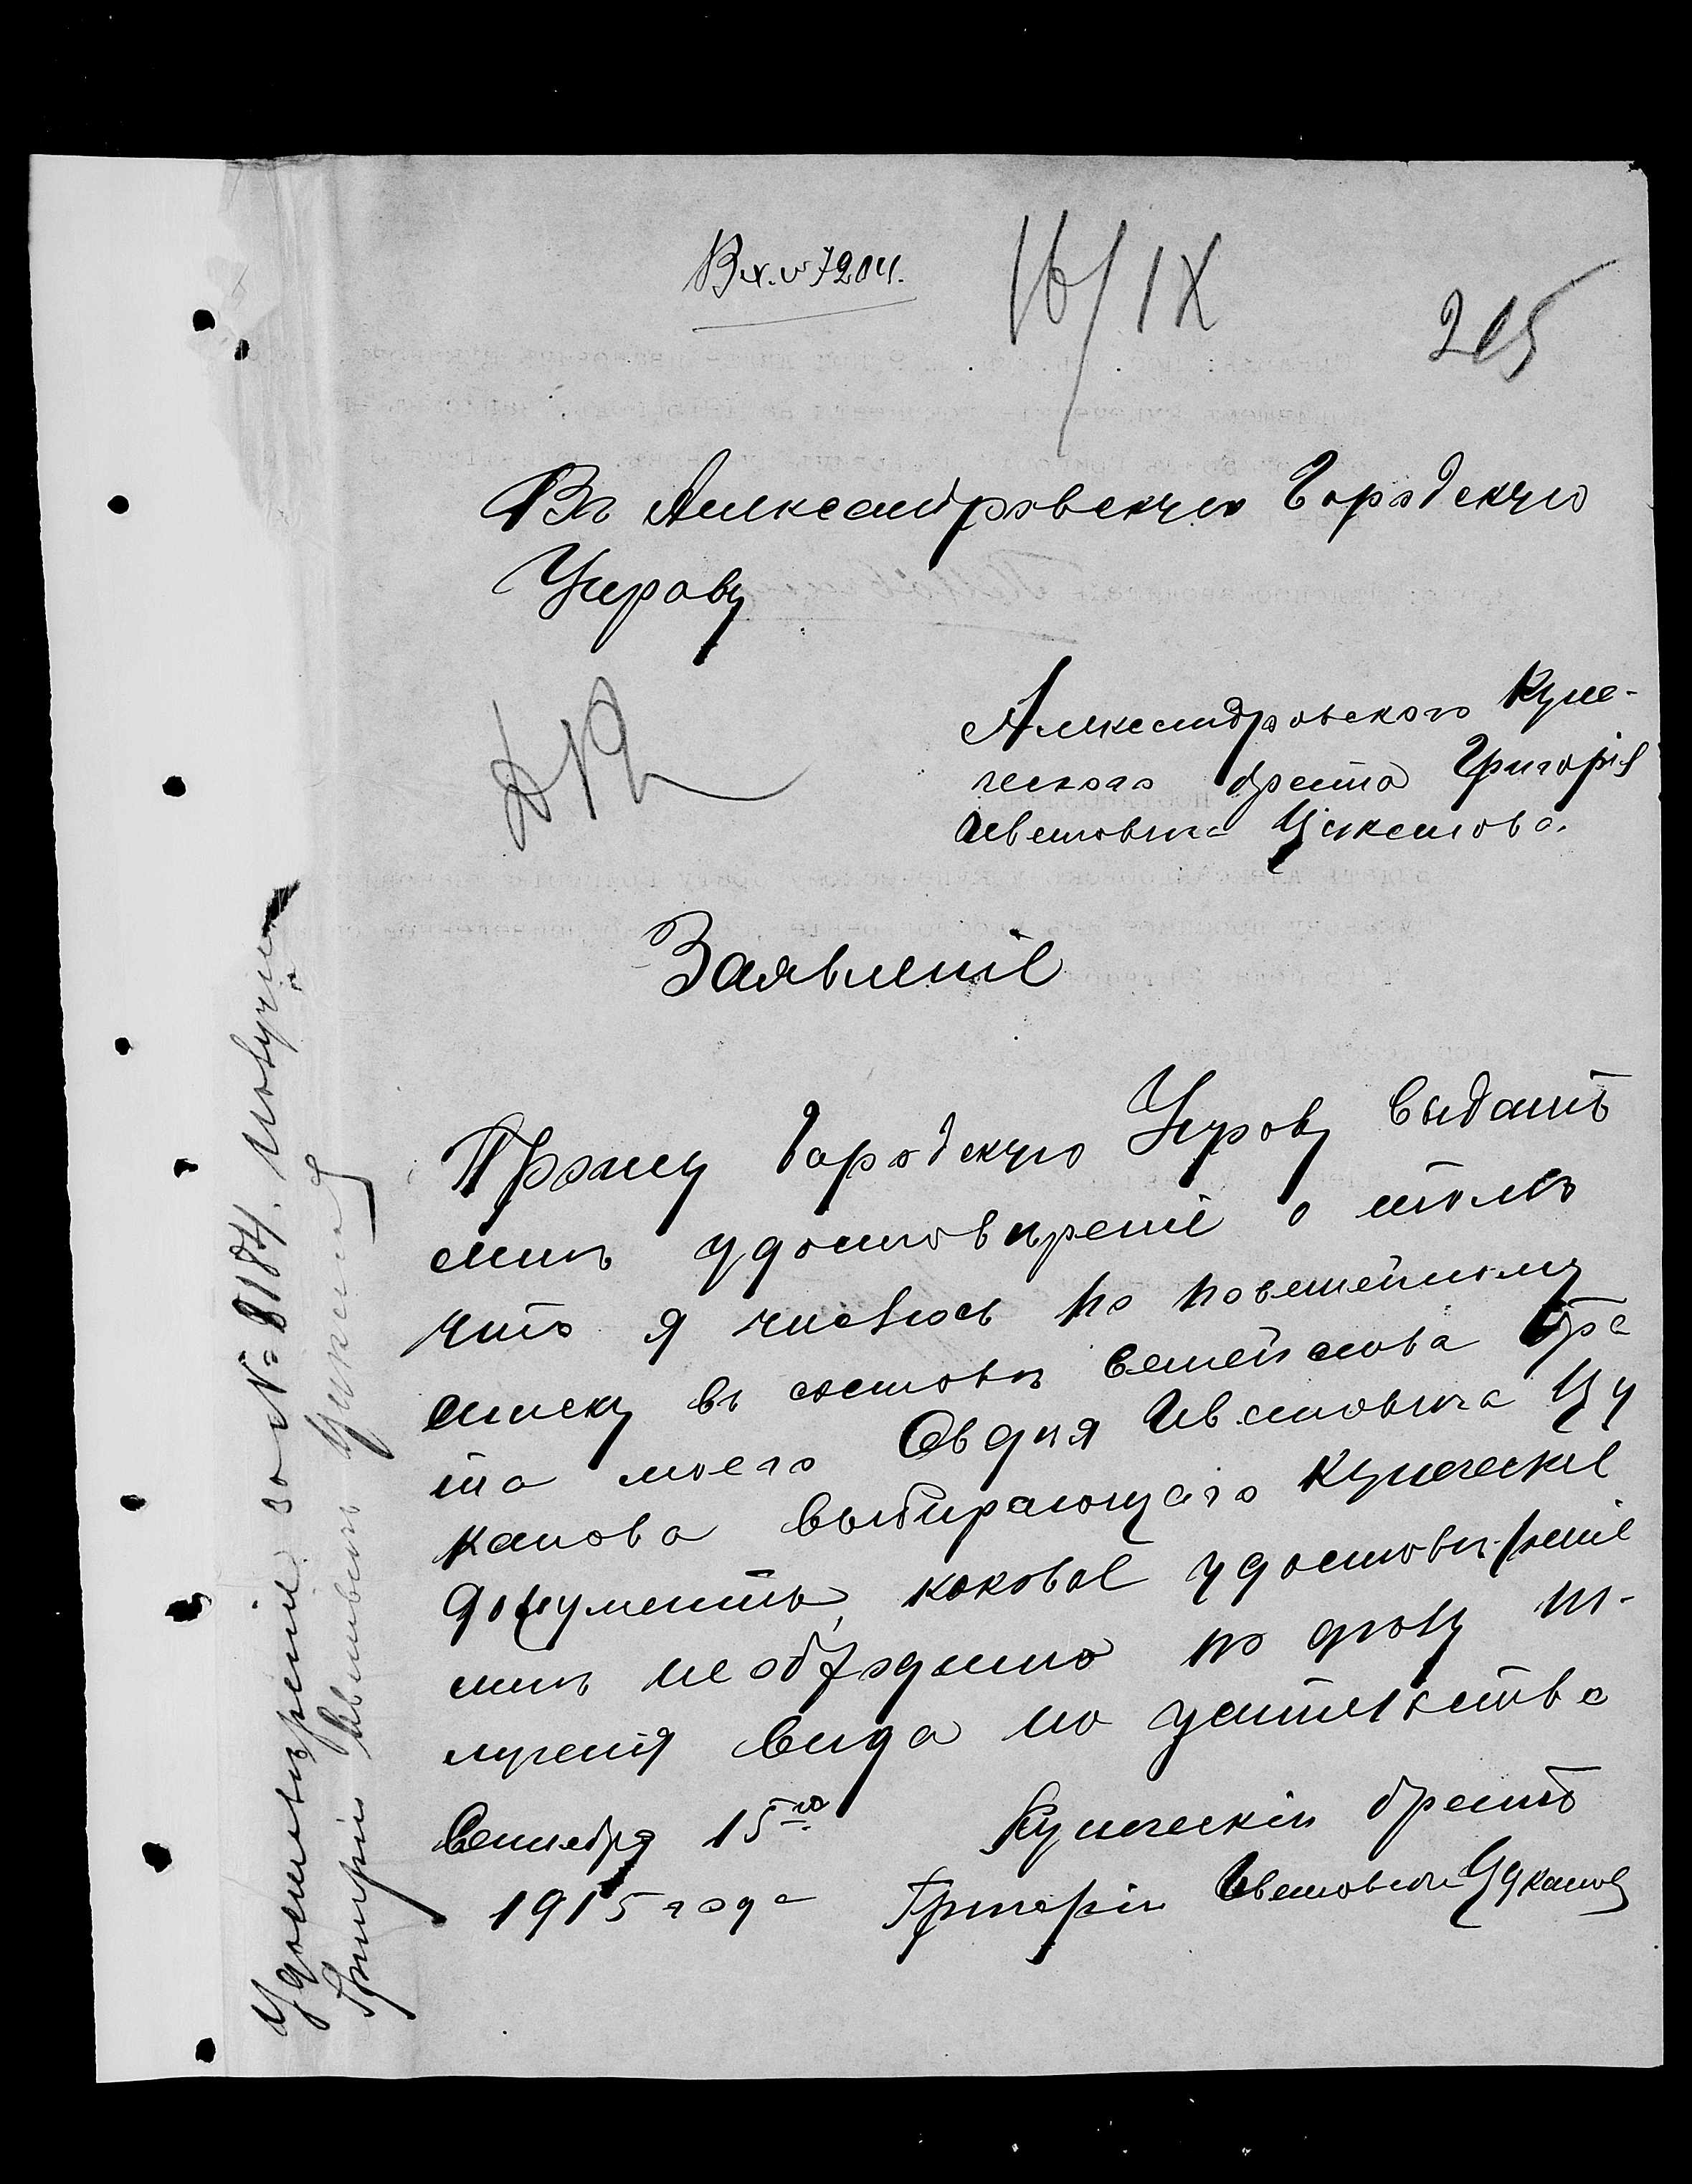 Вх. № 7204.
16/IX
215
Въ Александровскую Городскую
Управу
Александровскаго Купе-
ческаго брата Григорія
Ивановича Цуканова.
Заявленіе
Прошу Городскую Управу выдать
мнѣ удостовѣреніе о томъ
что я числюсь по посемейному
списку въ составѣ семейства бра
та моего Авдѣя Ивановича Цу
канова выбирающаго купеческіе
документы, каковое удостовѣреніе
мнѣ необходимо по дѣлу по-
лученія вида на жительство
Сентября 15го
1915 года
Купеческій братъ
Григорій Ивановичъ Цукановъ
Удостовѣреніе за № 8184. получилъ
Григорій Ивановичъ Цукановъ